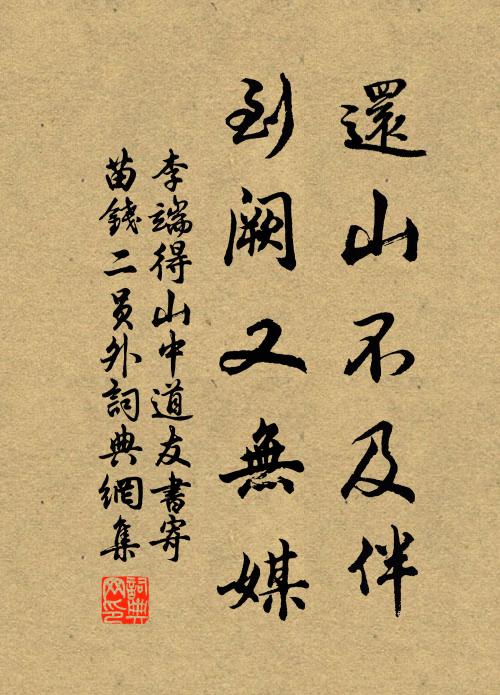 還山不及伴
到闕又無媒
李端得山中道友書寄
苗錢二員外詞典網集
詞典网印